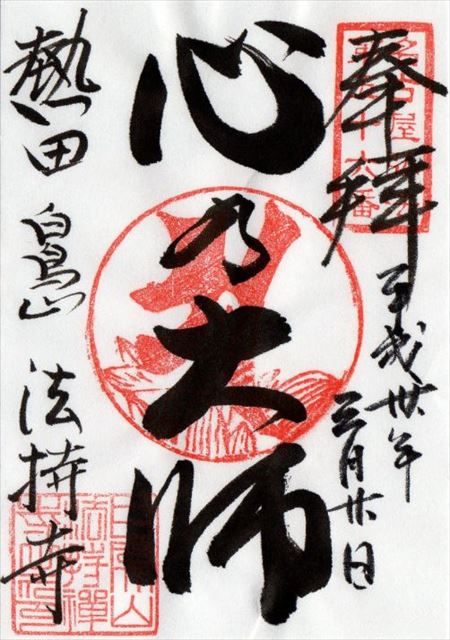 奉拝
平成卅年
三月廿日
心乃大師
熱田 白鳥山 法持寺
名古屋
十六番
白鳥山
法持禪